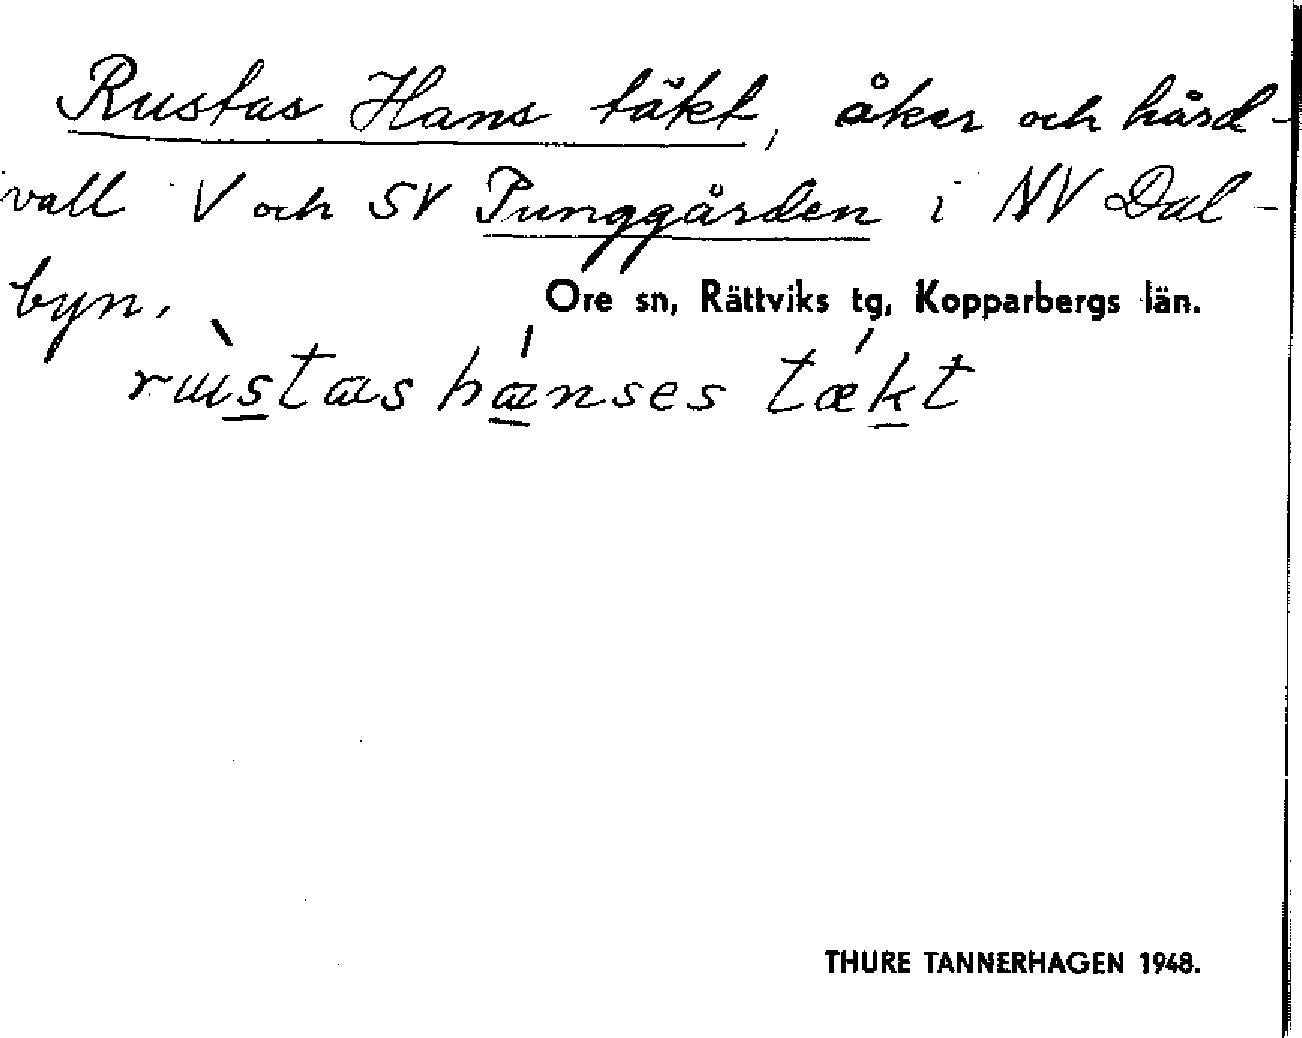 Rustas Hans täkt, åker och hård-
vall V och SV Punggården i NV Dal-
byn.
Ore sn, Rättviks tg, Kopparbergs län.
rustas hanses tækt
THURE TANNERHAGEN 1948.